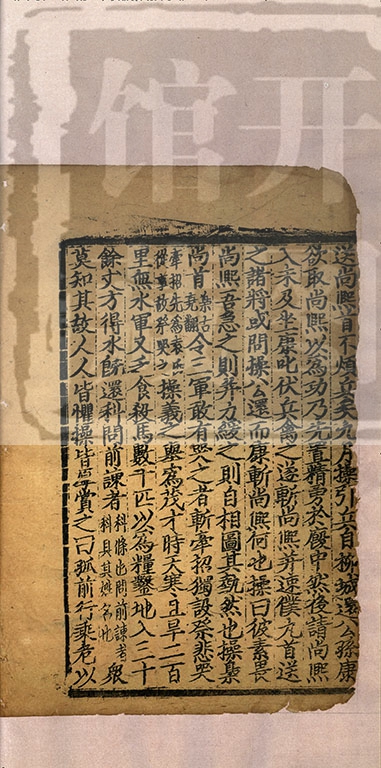 馆开
送尚熙首不煩兵矣九月操引兵自柳城還公孫康
欲取尚熙以為功乃先置精勇於廄中然後請尚熙
入未及坐康叱伏兵禽之遂斬尚熙并速僕丸首送
之諸將或問操公還而康斬尚熙何也操曰彼素畏
尚熙吾急之則并力緩之則自相圖其勢然也操梟
尚首梟古堯翻令三軍敢有哭之者斬牽招獨設祭悲哭
牽招先為袁氏從事故祭哭之操義之舉為茂才時大寒且旱二百
里無水軍又乏食殺馬數千匹以為糧鑿地入三十
餘丈方得水既還科問前諫者科條也問前諫者科具其姓名也眾
莫知其故人人皆懼操皆厚賞之曰孤前行乘危以